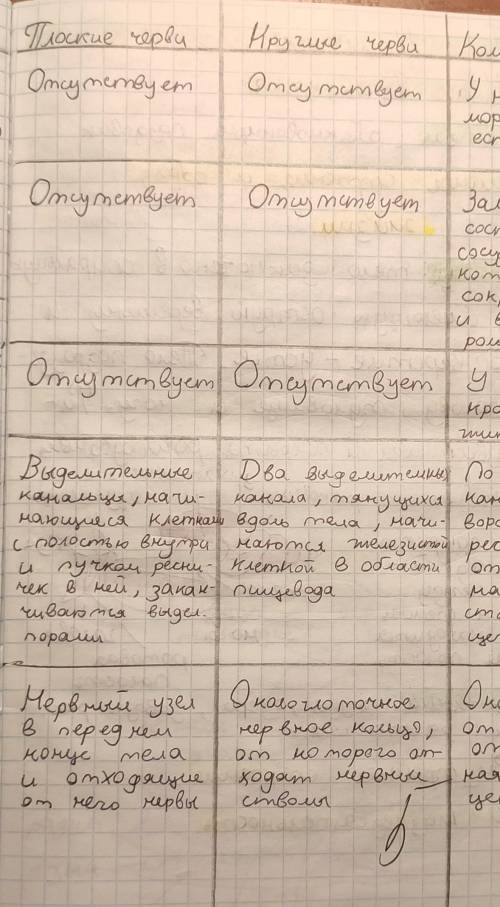 Плоские черви
Круглые черви
Отсутствует
Отсутствует
У
мор
ест
Отсутствует
Отсутствует
Зам
сост
сосу
кот
сок
и в
ром
Отсутствует
Отсутствует
У
кро
Выделительные
канальцы, начи-
нающиеся клетками
с полостью внутри
и пучком ресни-
чек в ней, закан-
чиваются выдел.
порами
Два выделительных
канала, тянущихся
вдоль тела, начи-
наются железистой
клеткой в области
пищевода
По
кан
воро
рес
от
ма
ст
ще
Нервный узел
в переднем
конце тела
и отходящие
от него нервы
Окологлоточное
нервное кольцо,
от которого от-
ходят нервные
стволы
Око
от
от
ная
це